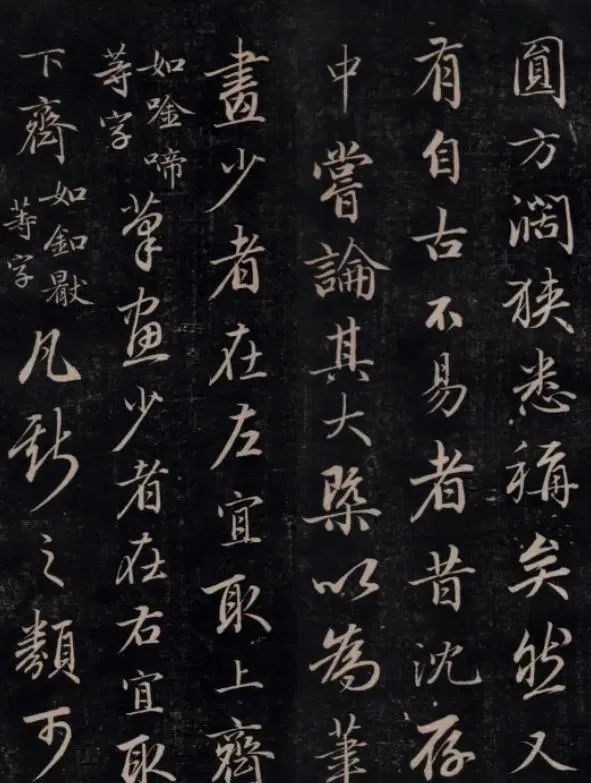 圓方濶狹悉稱矣然又
有自古不易者昔沈存
中嘗論其大槩以為筆
畫少者在左宜取上齊
如唫啼
等字
筆畫少者在右宜取
下齊
如釦
等字
凡斯之類可